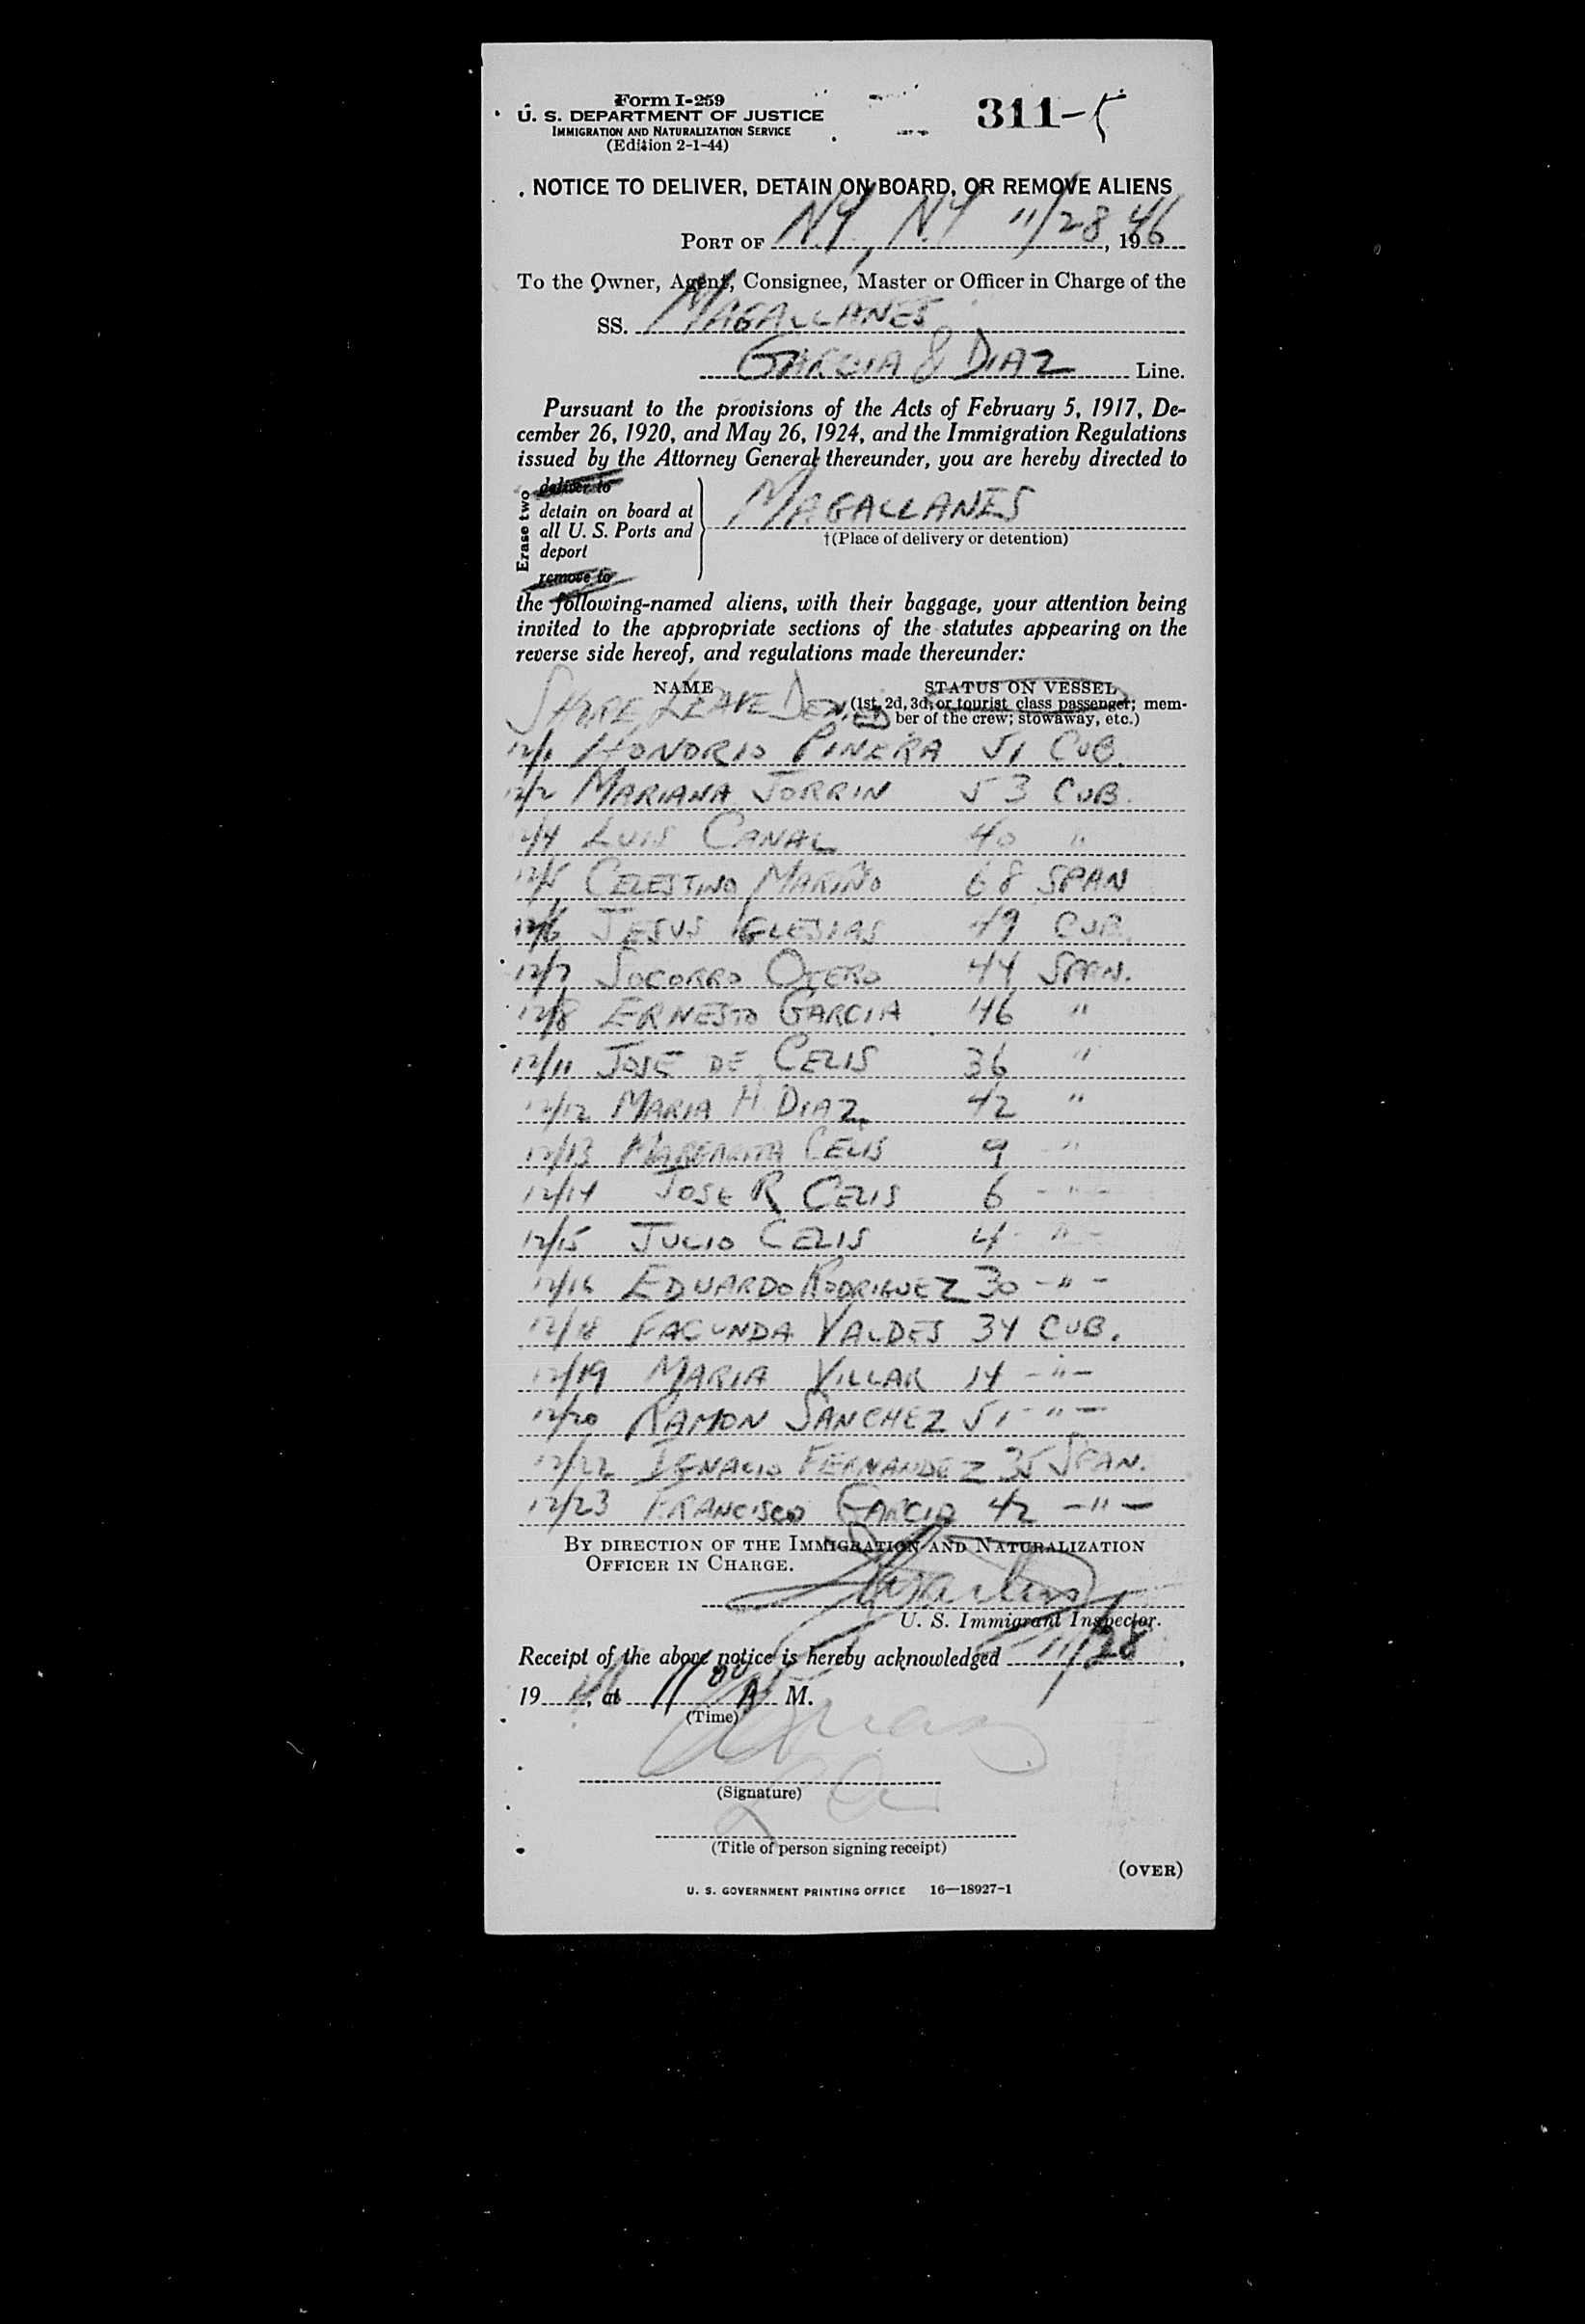 Form I-259
U. S. DEPARTMENT OF JUSTICE
IMMIGRATION AND NATURALIZATION SERVICE
(Edition 2-1-44)
311-5
NOTICE TO DELIVER, DETAIN ON BOARD, OR REMOVE ALIENS
PORT OF N.Y., N.Y 11/28, 1946
To the Owner, Agent, Consignee, Master or Officer in Charge of the
SS. MAGALLANES
GARCIA & DIAZ Line.
Pursuant to the provisions of the Acts of February 5, 1917, De-
cember 26, 1920, and May 26, 1924, and the Immigration Regulations
issued by the Attorney General thereunder, you are hereby directed to
Erase two
deliver to
detain on board at
all U. S. Ports and
deport
remove to
MAGALLANES
†(Place of delivery or detention)
the following-named aliens, with their baggage, your attention being
invited to the appropriate sections of the statutes appearing on the
reverse side hereof, and regulations made thereunder:
NAME STATUS ON VESSEL
(1st, 2d, 3d, or tourist class passenger; mem-
ber of the crew; stowaway, etc.)
SHORE LEAVE DENIED
12/1 HONORIO PINERA 51 CUB.
12/2 MARIANA TORRIN 53 CUB.
12/4 LUIS CANAL 40 "
12/5 CELESTINO MARIÑO 68 SPAN
12/6 JESUS IGLESIAS 49 CUB.
12/7 SOCORRO OTERO 44 SPAN.
12/8 ERNESTO GARCIA 46 "
12/11 JOSE DE CELIS 36 "
12/12 MARIA H. DIAZ 42 "
12/13 MARGARITA CELIS 9 "
12/14 JOSE R CELIS 6 - " -
12/15 JULIO CELIS 4 - " -
12/16 EDUARDO RODRIGUEZ 30 - " -
12/18 FACUNDA VALDES 34 CUB.
12/19 MARIA VILLAR 14 - " -
12/20 RAMON SANCHEZ 51 - " -
12/22 IGNACIO FERNANDEZ 35 SPAN.
12/23 FRANCISCO GARCIA 42 - " -
BY DIRECTION OF THE IMMIGRATION AND NATURALIZATION
OFFICER IN CHARGE.
U. S. Immigrant Inspector.
Receipt of the above notice is hereby acknowledged 11/28,
1946, at 11 00 A M.
(Time)
(Signature)
(Title of person signing receipt)
(OVER)
U. S. GOVERNMENT PRINTING OFFICE 16—18927-1